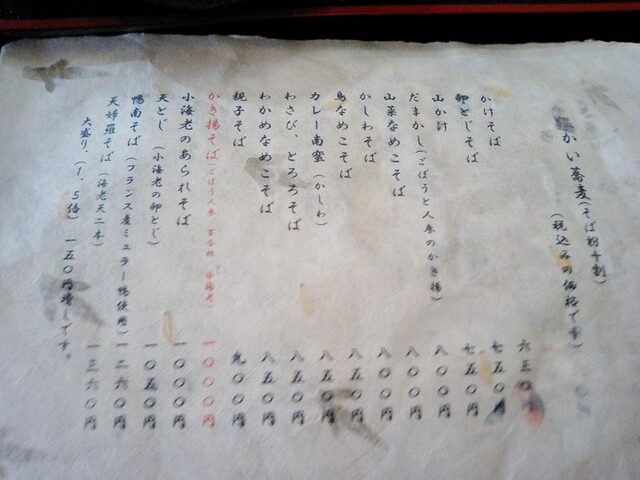 かい蕎麦(そば粉十割)
(税込みの価格です)
かけそば 六三〇円
卵とじそば 七五〇円
山かけ 七五〇円
だまかし(ごぼうと人参のかき揚) 八〇〇円
山菜なめこそば 八〇〇円
かしわそば 八〇〇円
鳥なめこそば 八五〇円
カレー南蛮(かしわ) 八五〇円
わさび、とろろそば 八五〇円
わかめなめこそば 八五〇円
親子そば 九〇〇円
かき揚そば(ごぼう人参 百合根 小海老) 一〇〇〇円
小海老のあられそば 一〇〇〇円
天とじ(小海老の卵とじ) 一〇五〇円
鴨南そば(フランス産ミュラー鴨使用) 一二六〇円
天婦羅そば(海老天二本) 一三六〇円
大盛り、(1.5倍) 一五〇円増しです。